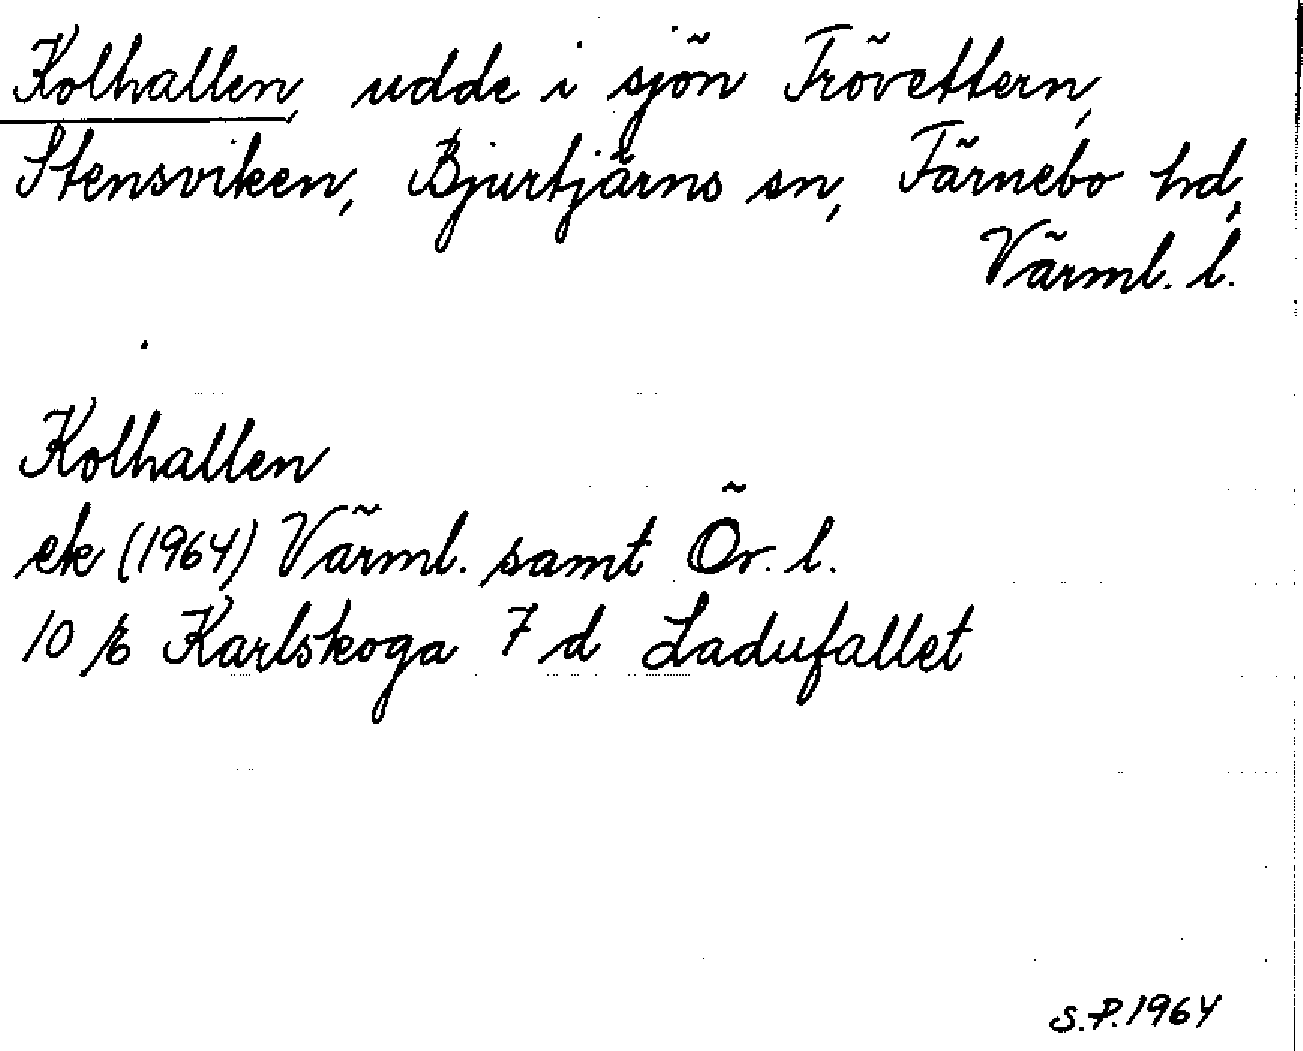 Kolhallen, udde i sjön Frövettern,
Stensviken, Bjurtjärns sn, Färnebo hd,
Värml. l.
Kolhallen
ek (1964) Värml. samt Ör. l.
10 E Karlskoga 7 d Ladufallet
S.P. 1964